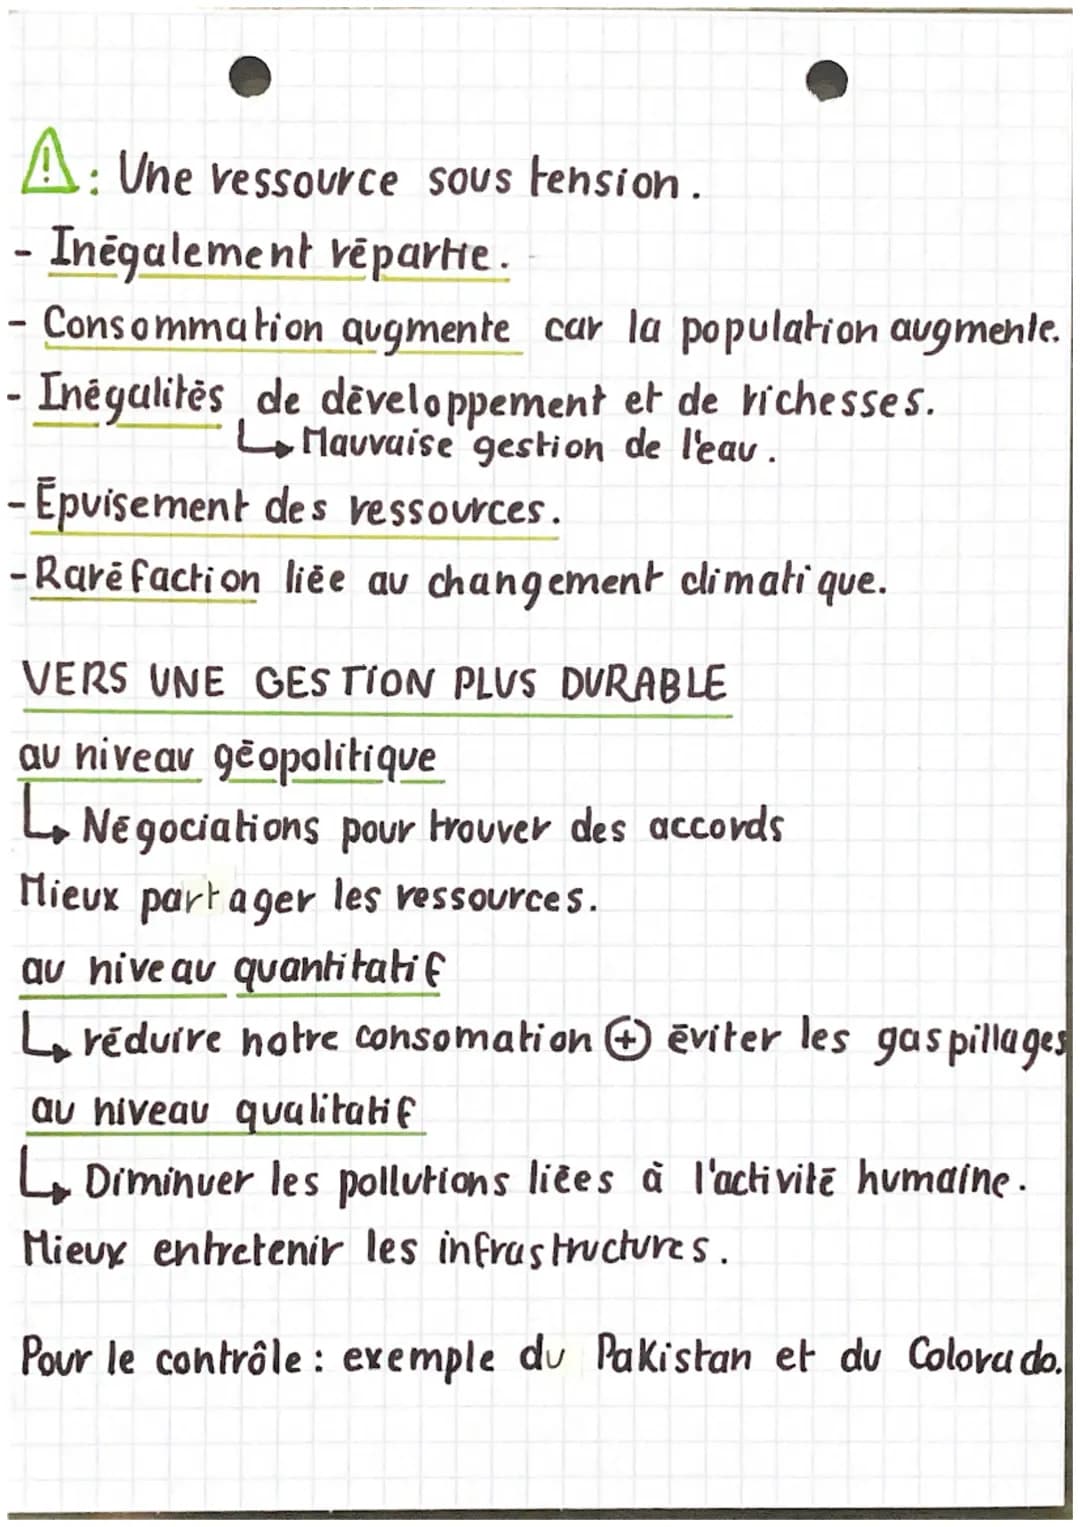 ⚠ : Une ressource sous tension.
- Inégalement répartie.
- Consommation augmente car la population augmente.
- Inégalités de développement et de richesses.
↳ Mauvaise gestion de l'eau.
- Épuisement des ressources.
- Raréfaction liée au changement climatique.
VERS UNE GESTION PLUS DURABLE
au niveau géopolitique
↳ Négociations pour trouver des accords
Mieux partager les ressources.
au niveau quantitatif
↳ réduire notre consomation ⊕ éviter les gaspillages
au niveau qualitatif
↳ Diminuer les pollutions liées à l'activité humaine.
Mieux entretenir les infrastructures.
Pour le contrôle : exemple du Pakistan et du Colorado.